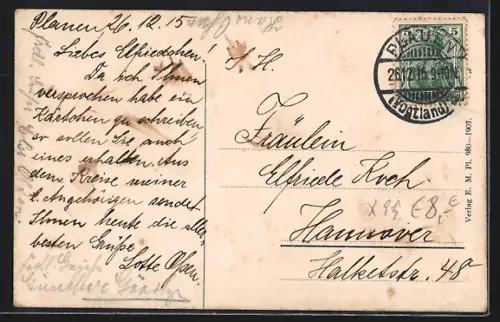 Plauen, 26.12.15
Liebes Elfriedchen!
Da ich Ihnen
versprochen habe ein
Kärtchen zu schreiben
so sollen Sie auch
eines erhalten. Aus
dem Kreise meiner
l. Angehörigen sendet
Ihnen heute die aller-
besten Grüße
Lotte
S. H.
Fräulein
Elfriede Koch.
Hannover
Halkettstr. 48
5
PLAUEN
26.12.15. 9-10
(Vogtland)
Verlag E. M. Pl. 980-1907.
X99 €8,-€